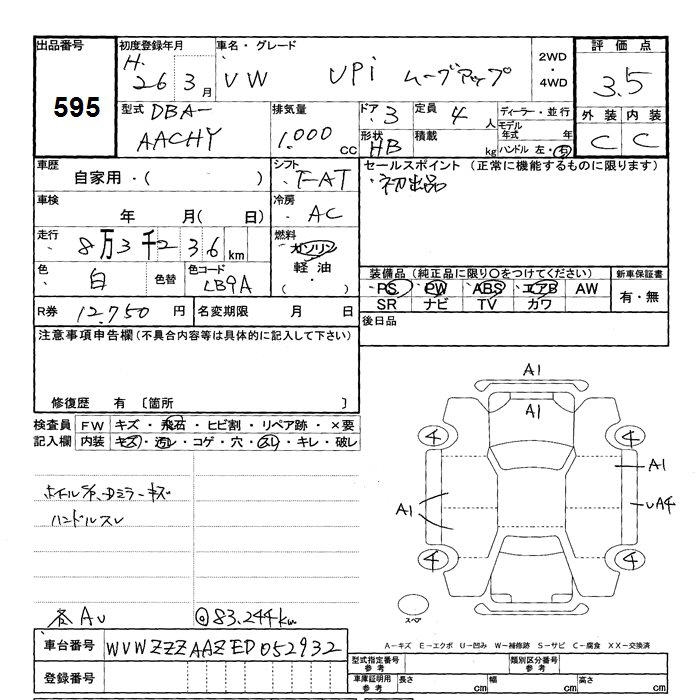 出品番号 初度登録年月 車名・グレード 2WD・4WD 評価点
595 H.26 3月 VW UPi ムーブアップ 3.5
型式 DBA-AACHY 排気量 1.000 CC ドア 3 定員 4人 ディーラー・並行 外装 内装
形状 HB 積載 kg モデル年式 年 ハンドル 左・右 C C
車歴 自家用・( ) シフト ・FAT セールスポイント (正常に機能するものに限ります)
・初出品
車検 年 月( 日) 冷房 ・AC
走行 8万3千2 3 6 km 燃料 ガソリン 軽油 ・( )
色 白 色替 色コード LB9A 装備品(純正品に限り○をつけてください) 新車保証書
・PS ・PW ・ABS ・エアB AW 有・無
SR ナビ TV カワ
R券 12.750 円 名変期限 月 日 後日品
注意事項申告欄(不具合内容等は具体的に記入して下さい)
修復歴 有 〔箇所 〕
検査員 FW キズ・飛石・ヒビ割・リペア跡・×要
記入欄 内装 キズ・汚レ・コゲ・穴・スレ・キレ・破レ
ハンドルスレ
A1
A1
4 4
A1
A1 UA4
4 4
スペア
各AU @83.244km
車台番号 WVWZZZAAZED052932
A-キズ E-エクボ U-凹み W-補修跡 S-サビ C-腐食 XX-交換済
登録番号
型式指定番号 参考 類別区分番号 参考
車庫証明用 参考 長さ cm 幅 cm 高さ cm